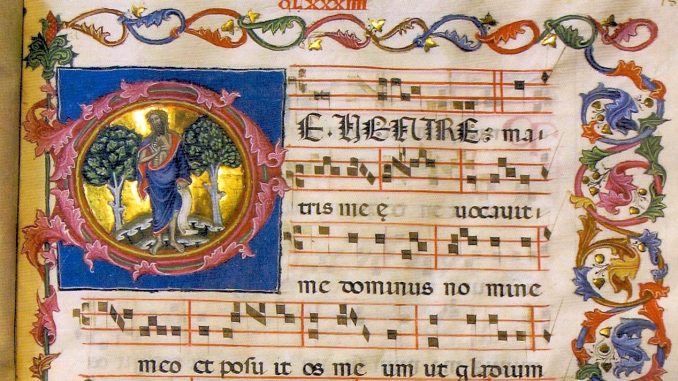 DE. VENTRE: ma
tris me ę uocauit
me dominus no mine
meo et posu it os me um ut gladium